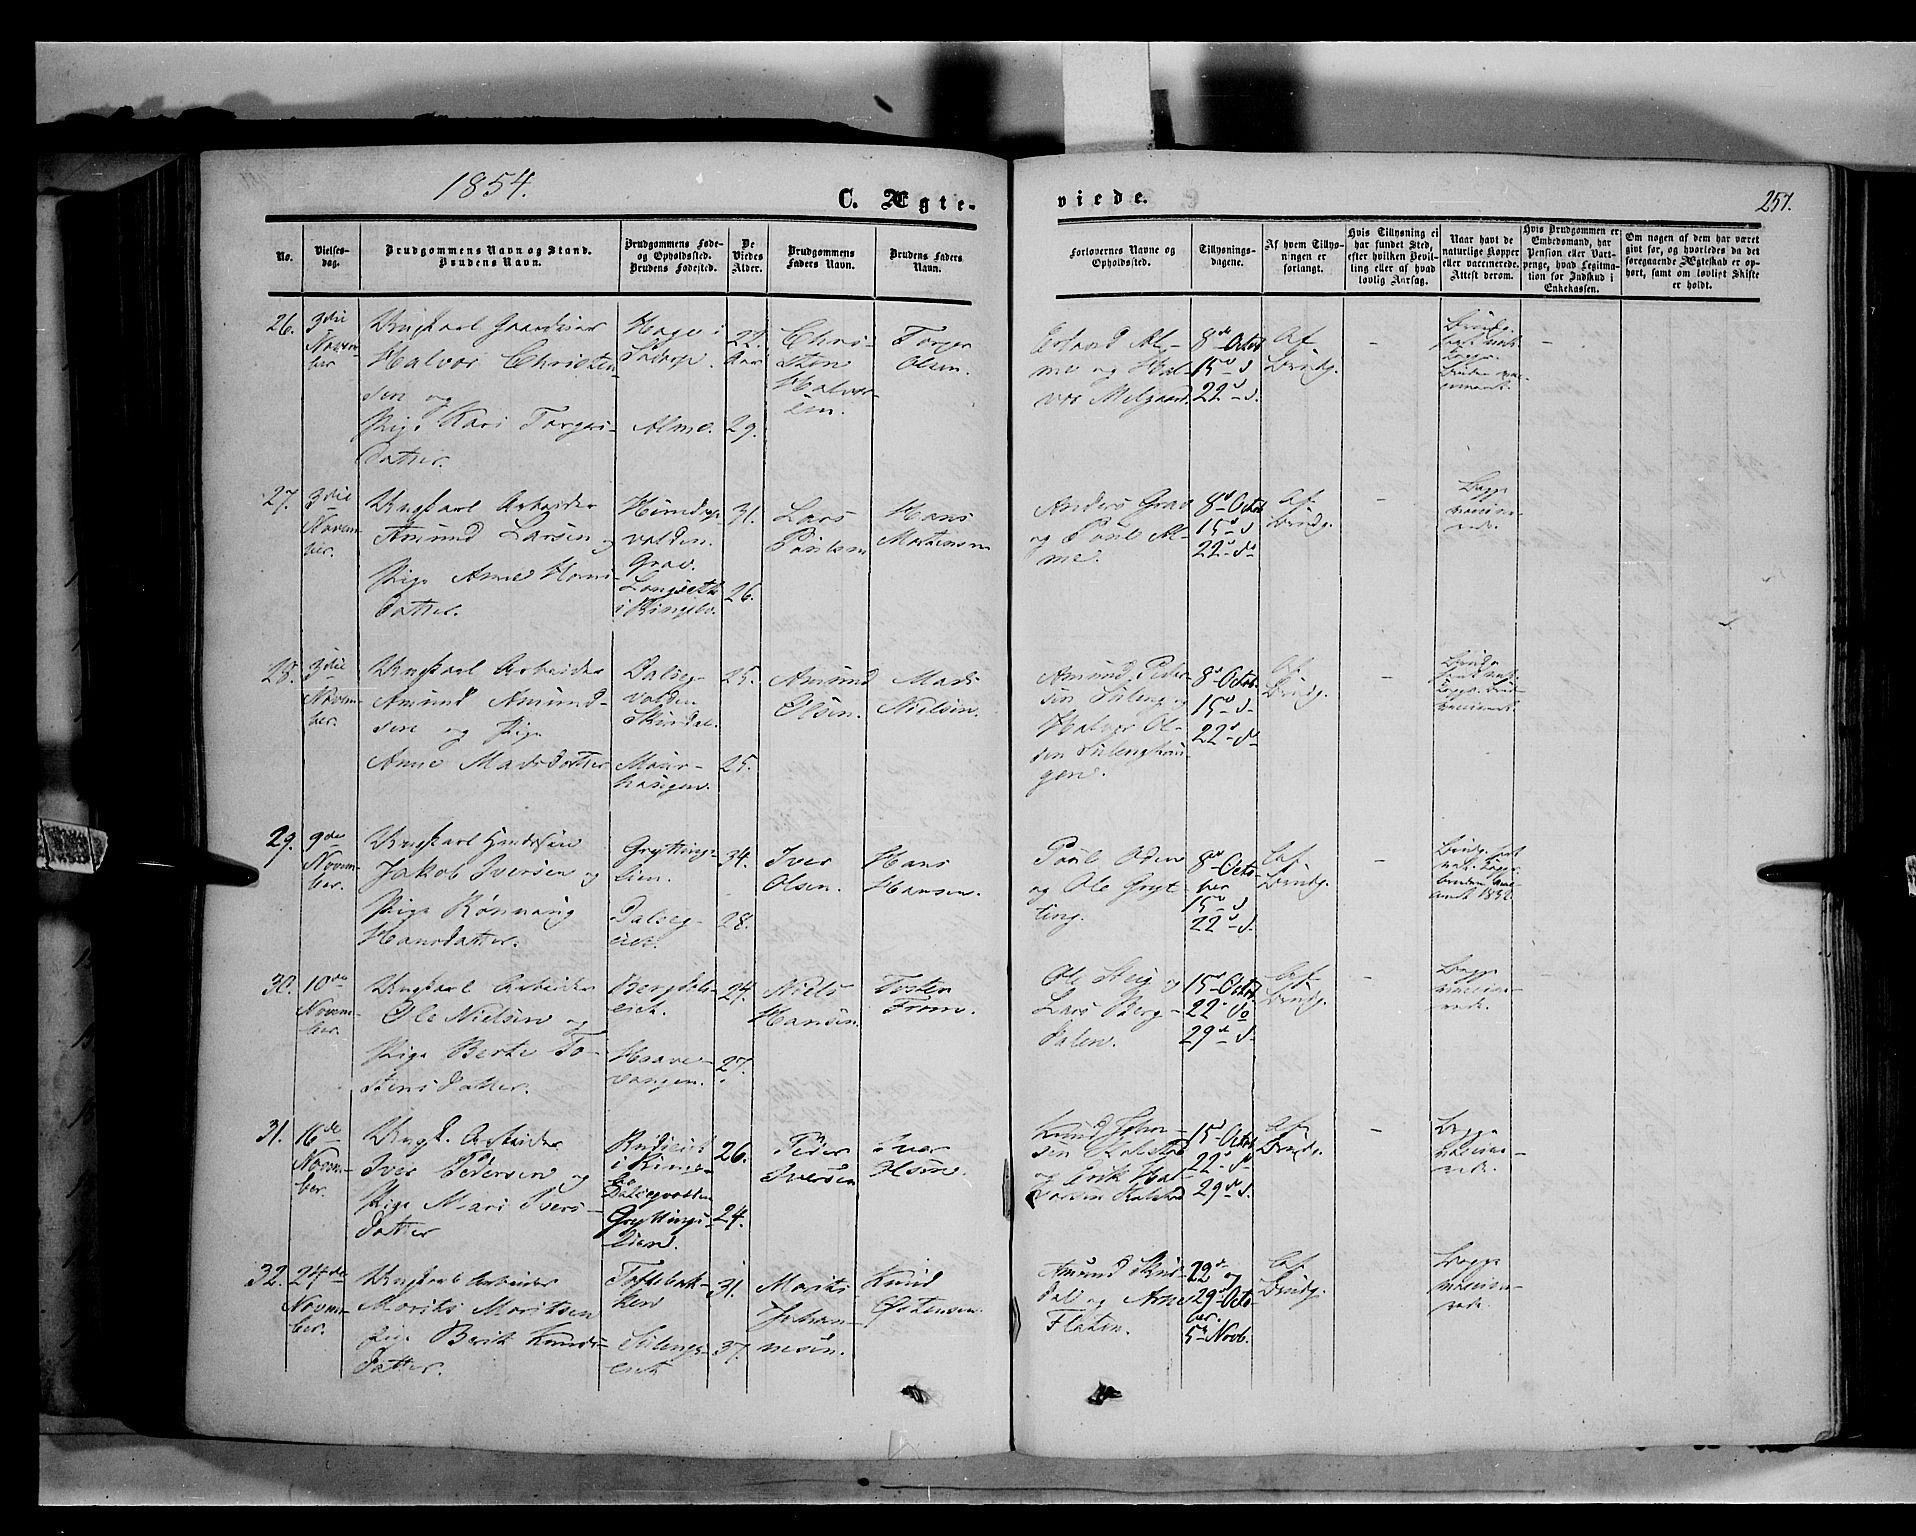 1854.
C. Ægte-
viede.
257.
No.
Vielses-
dag.
Brudgommens Navn og Stand.
Brudens Navn.
Brudgommens Føde-
og Opholdssted.
Brudens Fødested.
De
Viedes
Alder.
Brudgommens
Faders Navn.
Brudens Faders
Navn.
Forlovernes Navne og
Opholdssted.
Tillysnings-
dagene.
Af hvem Tillys-
ningen er
forlangt.
Hvis Tillysning ei
har fundet Sted,
efter hvilken Bevil-
ling eller af hvad
lovlig Aarsag.
Naar havt de
naturlige Kopper
eller vaccinerede.
Attest derom.
Hvis Brudgommen er
Embedsmand, har
Pension eller Vart-
penge, hvad Legitima-
tion for Indskud i
Enkekassen.
Om nogen af dem har været
gift før, og hvorledes da det
foregaaende Ægteskab er op-
hørt, samt om lovligt Skifte
er holdt.
26.
3die
Novem-
ber
Ungkarl Gaardmar
Halvor Christen-
sen og
Pige Kari Torgers-
datter.
Hage i
Alme.
22
Aar
29.
Chris-
sten
Halvor-
sen.
Torger
Olsen.
Erland Al-
me og Hal-
vor Melgaard.
8de Octob
15 d
22 d.
Af
Brudg.
-
27.
3die
Novem-
ber.
Ungkarl Arbeider
Amund Larsen og
Pige Anne Hans-
datter.
Hundorp-
valden.
Grav.
Longseth
i Ringebo.
31.
26.
Lars
Paulsen
Hans
Mortensen
Anders Grav
og Poul Al-
me.
8d Octob
15 d
22 do
Af
Brudg.
-
Begge
vaccine-
rede.
28.
3die
Novem-
ber.
Ungkarl Arbeider
Amund Amund-
sen og Pige
Anne Madsdatter
Dalseg-
valden
Skurdal.
Maur-
haugen.
25.
25.
Amund
Olsen.
Mads
Nielsen.
Amund Peder-
sen Suleng og
Halvor Ol-
sen Sulenghau-
gen.
8d Octob.
15 d
22 do
Af
Brudg.
-
29.
9de
Novem-
ber.
Ungkarl Huusmand
Jakob Iversen og
Pige Rønnaug
Hansdatter.
Gryttings-
lien.
Dalseg-
eiet.
34.
28.
Iver
Olsen.
Hans
Hansen.
Poul Oden
og Ole Gryt
ting.
8de Octo
ber
15 d
22 d.
Af
Brudg.
-
30.
10de
Novem-
ber.
Ungkarl Arbeider
Ole Nielsen og
Pige Berte To-
stensdatter.
Bergdals-
eiet.
Haave-
vangen.
24.
27.
Niels
Hansen.
Tosten
Ole Steig og
Lars Berg-
dalen.
15d Octob
22 do
29de d.
Af
Brudg.
-
Begge
vaccine-
rede.
31.
16de
Novem-
ber.
Ungk. Arbeider
Iver Pedersen og
Pige Mari Ivers-
datter
i Ringe-
bo
Dalsegvalden
Gryttings-
lien.
26.
24.
Peder
Iversen
Iver
Olsen.
Knud Johan-
sen Kalstad
og Erik Hal-
vorsen Kalstad
15d Octob
22 do
29de d.
Af
Brudg.
Begge
vaccine-
rede.
32.
24de
Novem-
ber.
Ungkarl Arbeider
Morits Moritsen
Pige Berit Knuds-
datter.
Toftebak-
ken
Sulengs-
eiet
31.
37.
Morits
Johan-
nesen.
Knud
Østensen.
Amund Skur-
dal og Arne
Flaten.
22de og
29de Octo-
ber.
5te Novb.
Af
Brudg.
Begge
vaccine-
rede.